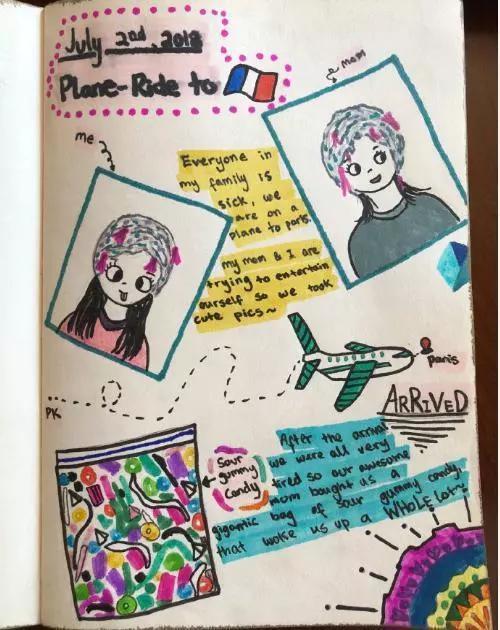 July 2nd, 2018
Plane-Ride to
mom
me
Everyone in
my family is
sick, we
are on a
plane to paris.
my mom & I are
trying to entertain
ourself so we took
cute pics~
paris
PK
ARRIVED
After the arrival
we were all very
tired so our awesome
mom bought us a
gigantic bag of sour gummy candy,
that woke us up a WHOLE lot!
sour
gummy
candy